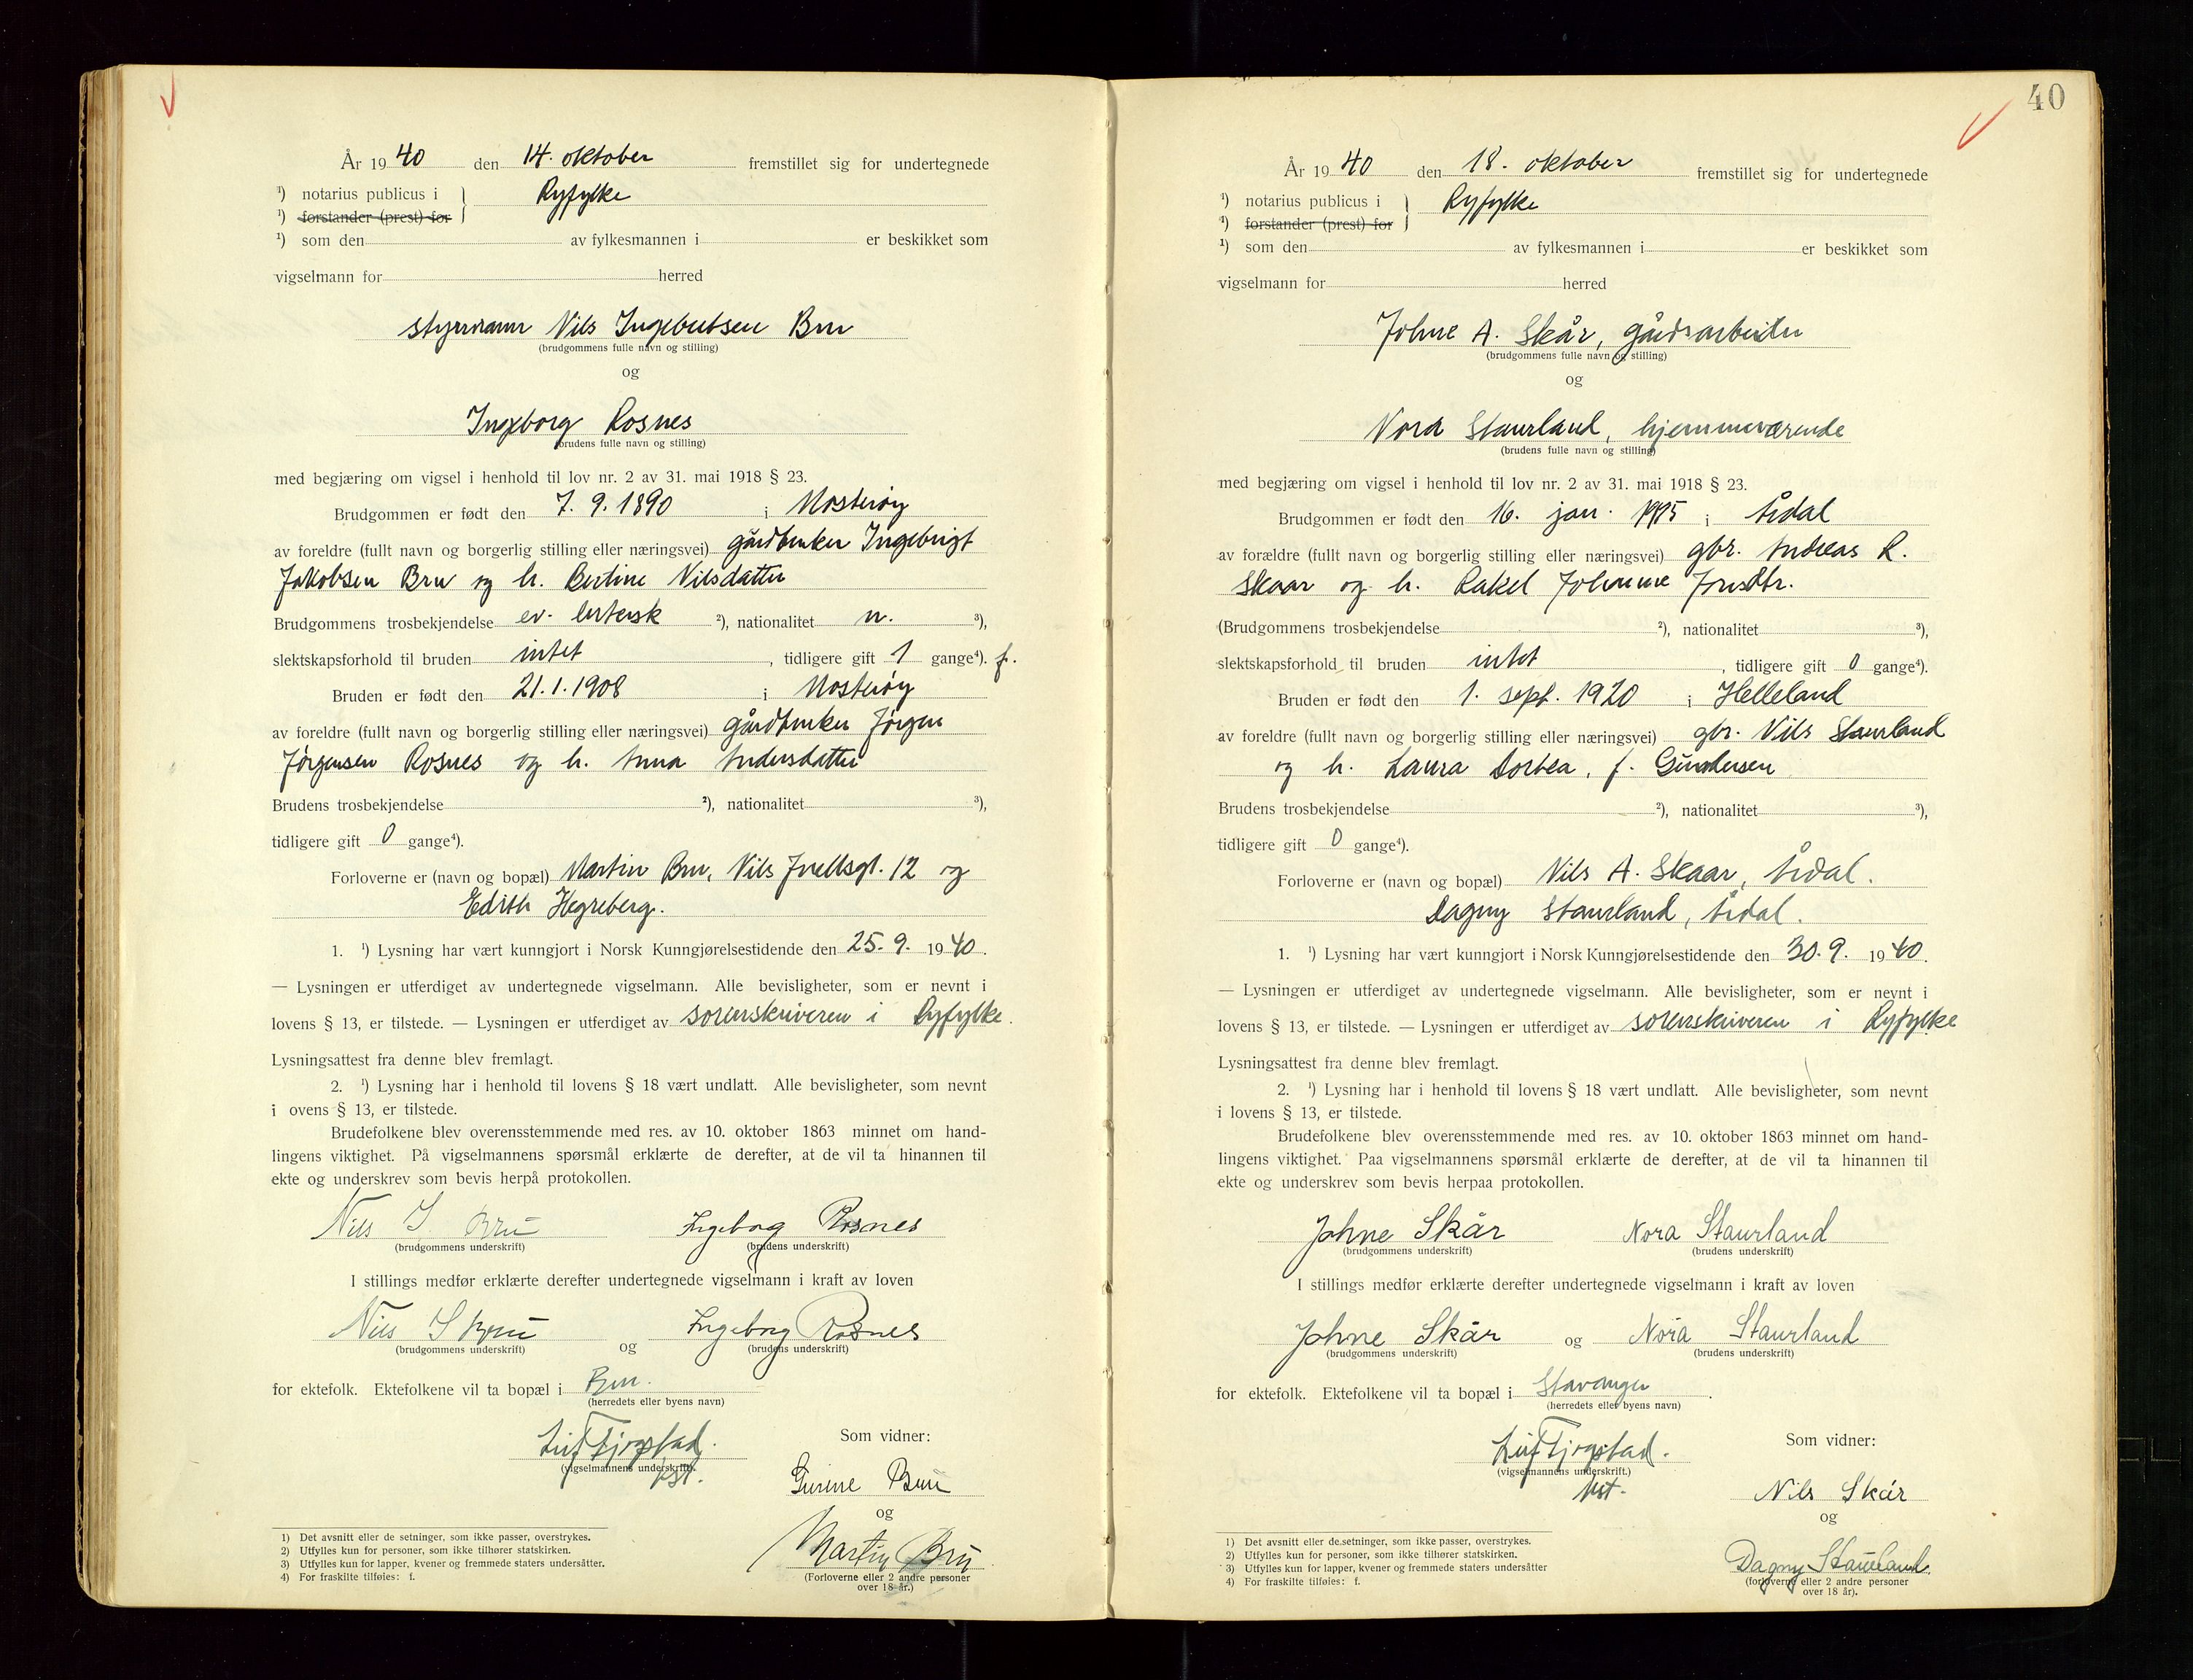 År 1940 den 14. oktober fremstillet sig for undertegnede
¹) notarius publicus i } Ryfylke
¹) forstander (prest) for
¹) som den av fylkesmannen i er beskikket som
vigselmann for herred
styrmann Nils Ingebretsen Bru
(brudgommens fulle navn og stilling)
og
Ingeborg Rosnes
(brudens fulle navn og stilling)
med begjæring om vigsel i henhold til lov nr. 2 av 31. mai 1918 § 23.
Brudgommen er født den 7. 9. 1890 i Mosterøy
av foreldre (fullt navn og borgerlig stilling eller næringsvei) gårdbruker Ingebrigt
Jakobsen Bru og h. Bertine Nilsdatter
Brudgommens trosbekjendelse ev. lutersk ²), nationalitet n. ³),
slektskapsforhold til bruden intet, tidligere gift 1 gange⁴). f.
Bruden er født den 21. 1. 1908 i Mosterøy
av foreldre (fullt navn og borgerlig stilling eller næringsvei) gårdbruker Jørgen
Jørgensen Rosnes og h. Anna Andersdatter
Brudens trosbekjendelse ²), nationalitet ³),
tidligere gift 0 gange⁴).
Forloverne er (navn og bopæl) Martin Bru, Nils Juellsgt. 12 og
Edith Hegreberg.
1. ¹) Lysning har vært kunngjort i Norsk Kunngjørelsestidende den 25. 9. 1940.
— Lysningen er utferdiget av undertegnede vigselmann. Alle bevisligheter, som er nevnt i
lovens § 13, er tilstede. — Lysningen er utferdiget av sorenskriveren i Ryfylke.
Lysningsattest fra denne blev fremlagt.
2. ¹) Lysning har i henhold til lovens § 18 vært undlatt. Alle bevisligheter, som nevnt
i ovens § 13, er tilstede.
Brudefolkene blev overensstemmende med res. av 10. oktober 1863 minnet om hand-
lingens viktighet. På vigselmannens spørsmål erklærte de derefter, at de vil ta hinannen til
ekte og underskrev som bevis herpå protokollen.
Nils I. Bru Ingeborg Rosnes
(brudgommens underskrift) (brudens underskrift)
I stillings medfør erklærte derefter undertegnede vigselmann i kraft av loven
Nils I Bru og Ingeborg Rosnes
(brudgommens underskrift) (brudens underskrift)
for ektefolk. Ektefolkene vil ta bopæl i Bru.
(herredets eller byens navn)
Leif Tjogstad.
(vigselmannens underskrift).
kst.
Som vidner:
Gurine Bru
og
Martin Bru
(Forloverne eller 2 andre personer
over 18 år.)
1) Det avsnitt eller de setninger, som ikke passer, overstrykes.
2) Utfylles kun for personer, som ikke tilhører statskirken.
3) Utfylles kun for lapper, kvener og fremmede staters undersåtter.
4) For fraskilte tilføies: f.
40
År 1940 den 18. oktober fremstillet sig for undertegnede
¹) notarius publicus i } Ryfylke
¹) forstander (prest) for
¹) som den av fylkesmannen i er beskikket som
vigselmann for herred
Johne A. Skår, gårdsarbeider
(brudgommens fulle navn og stilling)
og
Nora Staurland, hjemmeværende
(brudens fulle navn og stilling)
med begjæring om vigsel i henhold til lov nr. 2 av 31. mai 1918 § 23.
Brudgommen er født den 16. jan. 1915 i Årdal
av forældre (fullt navn og borgerlig stilling eller næringsvei) gbr. Andreas R.
Skaar og h. Rakel Johanne Jonsdtr.
(Brudgommens trosbekjendelse ²), nationalitet ³),
slektskapsforhold til bruden intet, tidligere gift 0 gange⁴).
Bruden er født den 1. sept. 1920 i Helleland
av foreldre (fullt navn og borgerlig stilling eller næringsvei) gbr. Nils Staurland
og h. Laura Dortea, f. Gundersen
Brudens trosbekjendelse ²), nationalitet ³),
tidligere gift 0 gange⁴).
Forloverne er (navn og bopæl) Nils A. Skaar, Årdal.
Dagny Staurland, Årdal.
1. ¹) Lysning har vært kunngjort i Norsk Kunngjørelsestidende den 30. 9. 1940.
— Lysningen er utferdiget av undertegnede vigselmann. Alle bevisligheter, som er nevnt i
lovens § 13, er tilstede. — Lysningen er utferdiget av sorenskriveren i Ryfylke
Lysningsattest fra denne blev fremlagt.
2. ¹) Lysning har i henhold til lovens § 18 vært undlatt. Alle bevisligheter, som nevnt
i lovens § 13, er tilstede.
Brudefolkene blev overensstemmende med res. av 10. oktober 1863 minnet om hand-
lingens viktighet. Paa vigselmannens spørsmål erklærte de derefter, at de vil ta hinannen til
ekte og underskrev som bevis herpaa protokollen.
Johne Skår Nora Staurland
(brudgommens underskrift) (brudens underskrift)
I stillings medfør erklærte derefter undertegnede vigselmann i kraft av loven
Johne Skår og Nora Staurland
(brudgommens underskrift) (brudens underskrift)
for ektefolk. Ektefolkene vil ta bopæl i Stavanger.
(herredets eller byens navn)
Leif Tjogstad.
(vigselmannens underskrift.)
kst.
Som vidner:
Nils Skår
og
Dagny Staurland.
(forloverne eller 2 andre personer
over 18 år).
1) Det avsnitt eller de setninger, som ikke passer, overstrykes.
2) Utfylles kun for personer, som ikke tilhører statskirken.
3) Utfylles kun for lapper, kvener og fremmede staters undersåtter
4) For fraskilte tilføies: f.